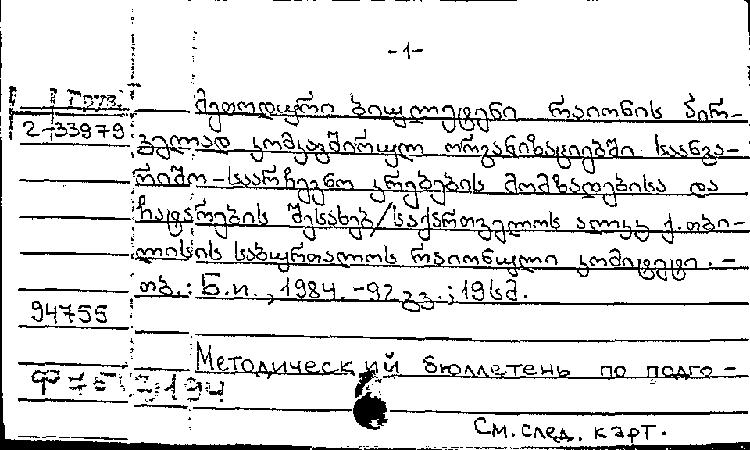 -1-
Груз.
2-33979
მეთოდური ბიულეტენი რაიონის პირ-
ველად კომკავშირულ ორგანიზაციებში საანგა-
რიშო-საარჩევნო კრებების მომზადებისა და
ჩატარების შესახებ/საქართველოს ალკკ ქ.თბი-
ლისის საბურთალოს რაიონული კომიტეტი.-
თბ.: Б.и., 1984.-92 გვ.; 19 სმ.
94755
Методический бюллетень по подго-
См. след. карт.